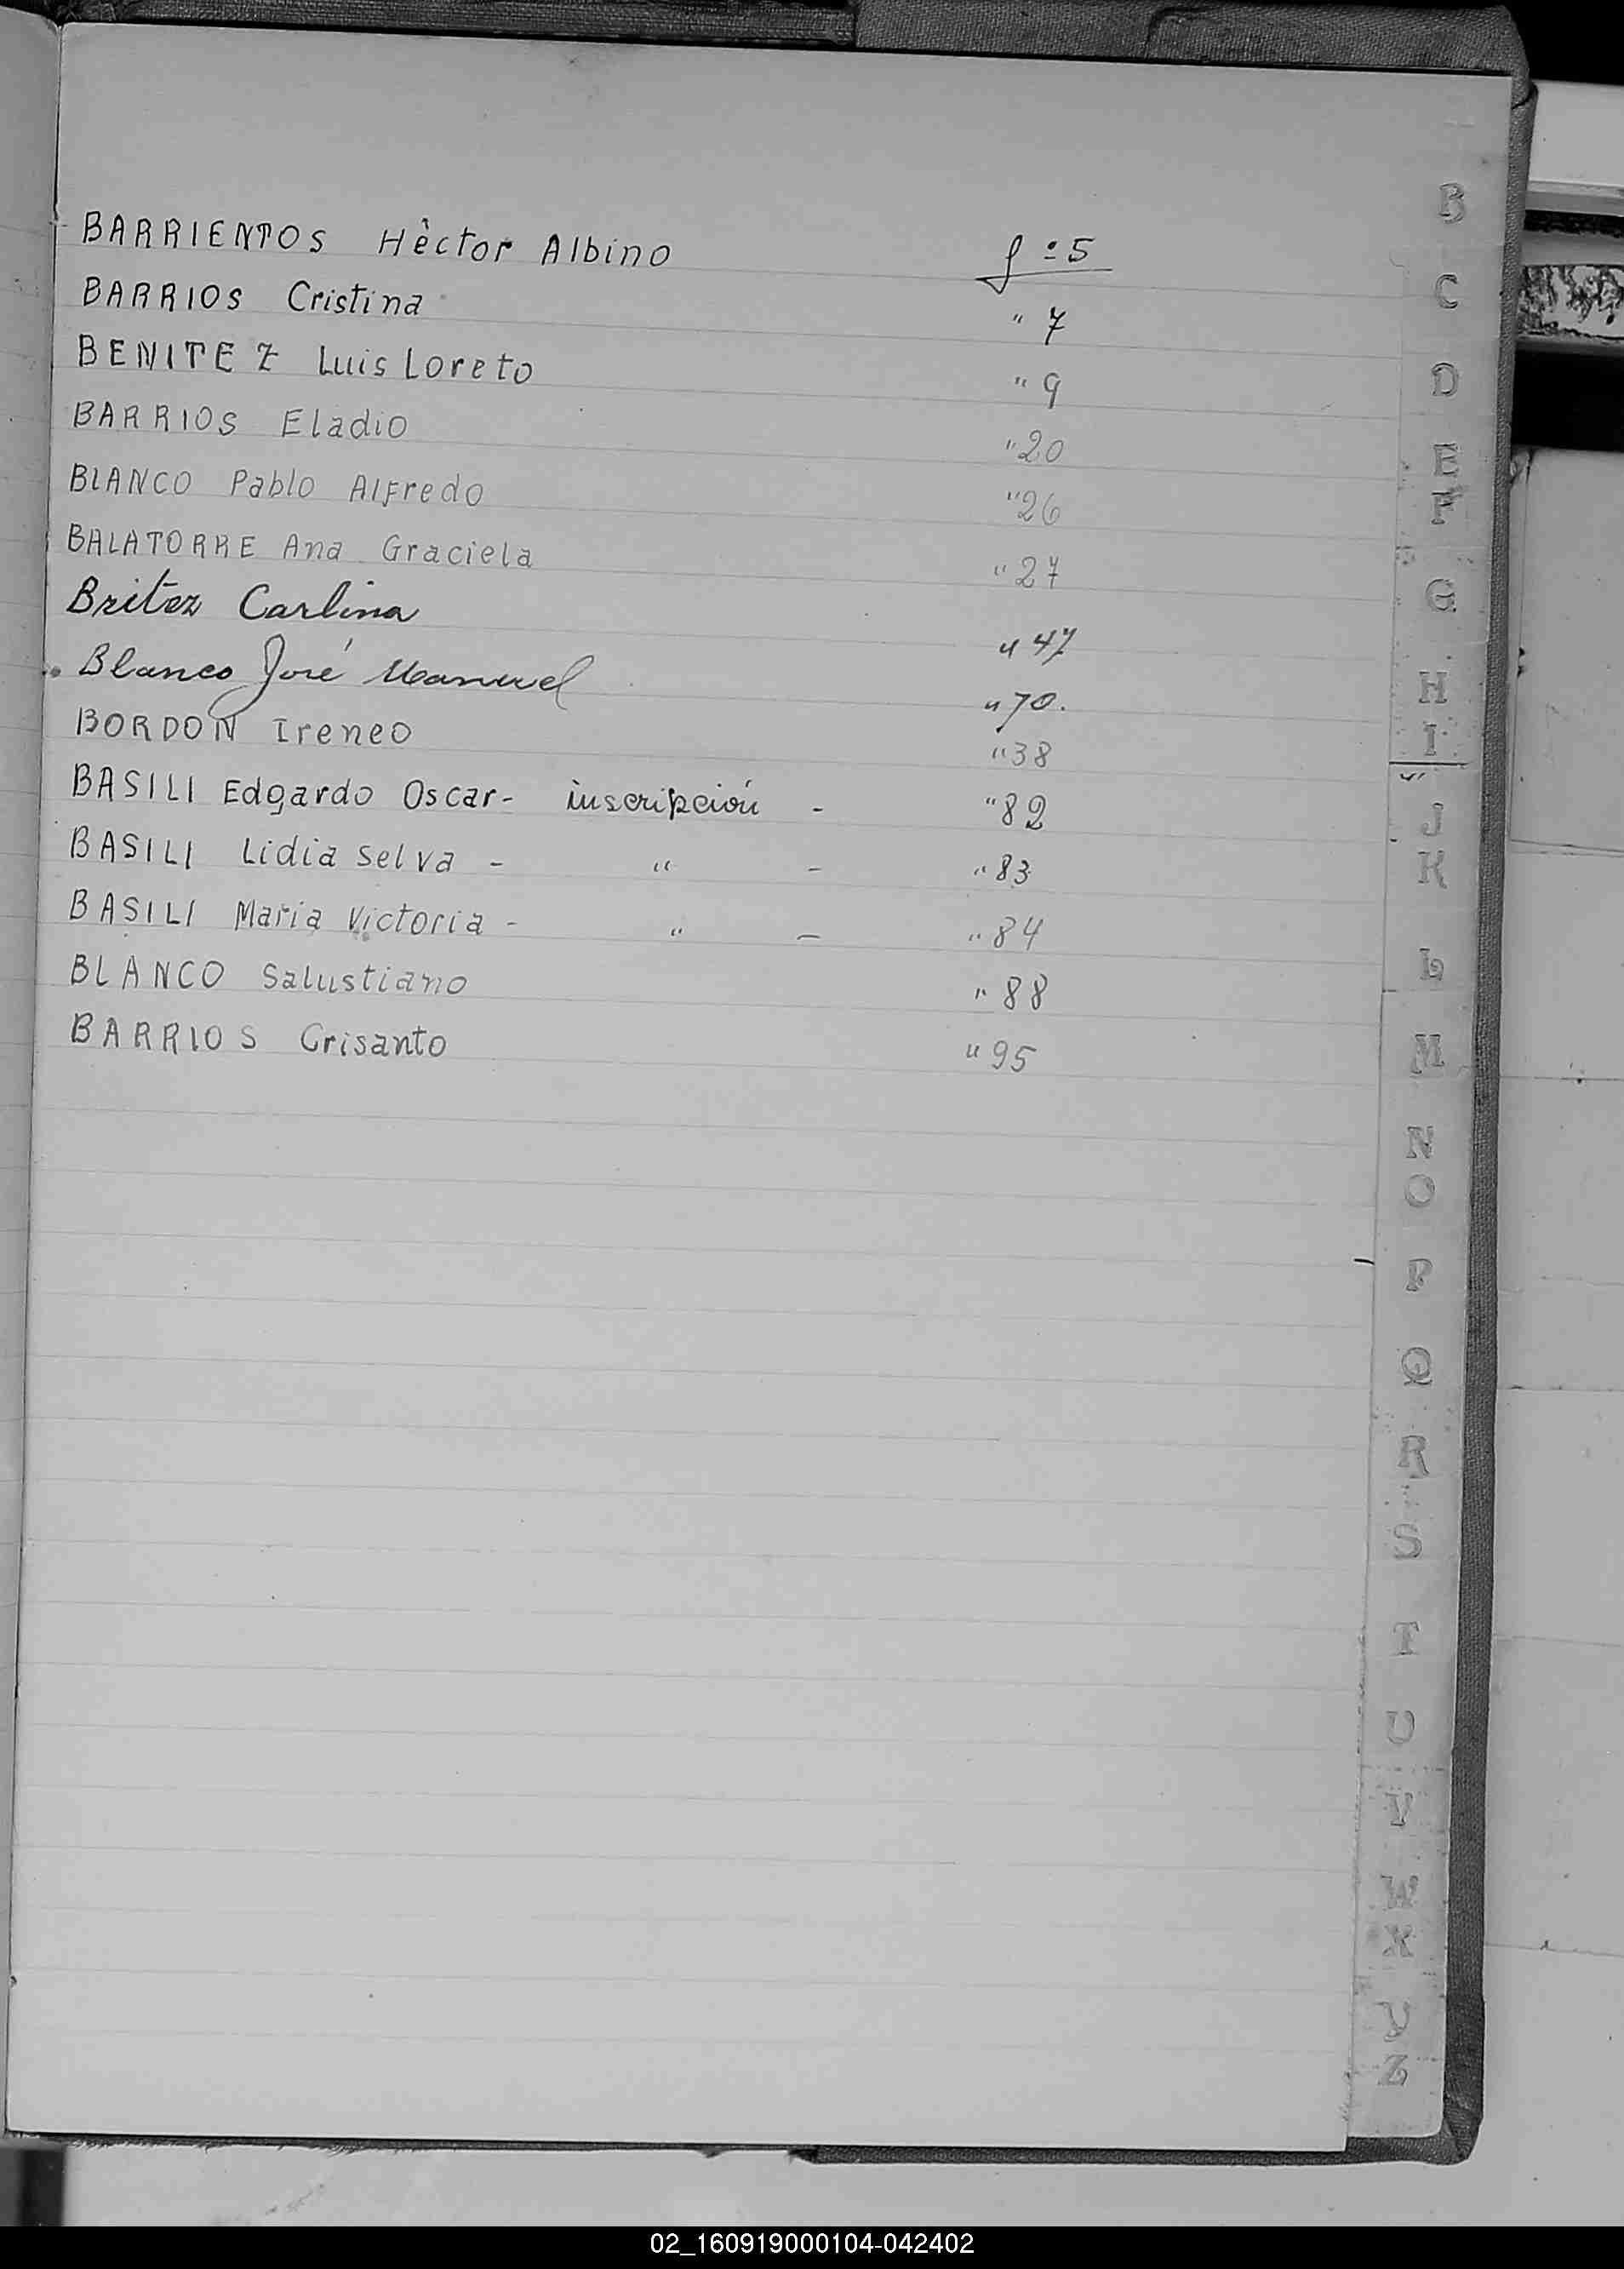 BARRIENTOS Hèctor Albino f:5
BARRIOS Cristina " 7
BENITEZ Luis Loreto " 9
BARRIOS Eladio "20
BLANCO Pablo Alfredo "26
BALATORRE Ana Graciela "27
Britez Carlina " 47
Blanco José Manuel "70.
BORDON Ireneo "38
BASILI Edgardo Oscar- inscripción - "82
BASILI Lidia Selva - " - "83
BASILI Maria Victoria - " - "84
BLANCO Salustiano "88
BARRIOS Crisanto "95
B
C
D
E
F
G
H
I
J
K
L
M
N
O
P
Q
R
S
T
U
V
W
X
Y
Z
02_160919000104-042402